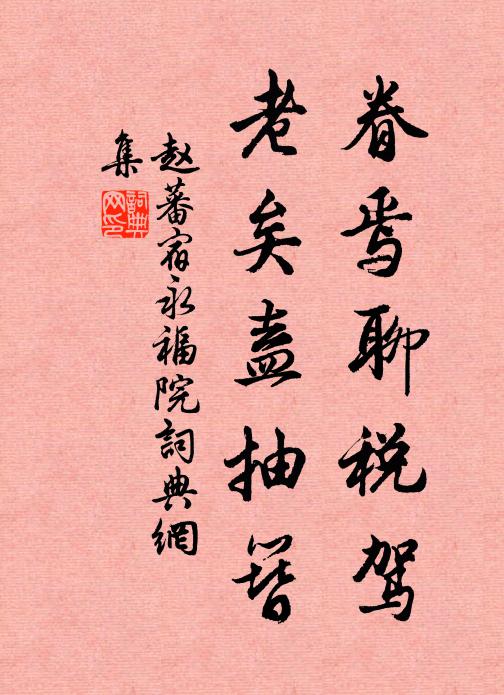 眷焉聊税驾
老矣盍抽簪
赵蕃宿永福院词典網
集
词典
网印